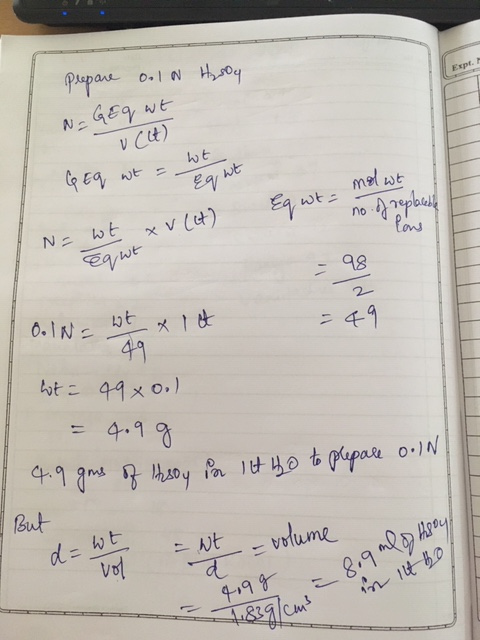 Expt. N
Prepare 0.1 N H2SO4
N = GEq wt / V (lt)
GEq wt = wt / Eq wt
Eq wt = mol wt / no. of replaceable ions
N = wt / Eq wt × V (lt)
= 98 / 2
= 49
0.1N = wt / 49 × 1 lt
wt = 49 × 0.1
= 4.9 g
4.9 gms of H2SO4 in 1lt H2O to prepare 0.1N
But
d = wt / vol = wt / d = volume
= 4.9 g / 1.83g/cm³ = 8.9 ml of H2SO4 in 1lt H2O